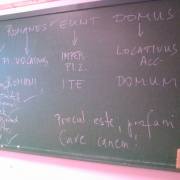 ROMANES EUNT DOMUS
PL. VOCATIVUS IMPER. PL.2. LOCATIVUS ACC.
ROMANI ITE DOMUM
procul este, profani
Cave canem!